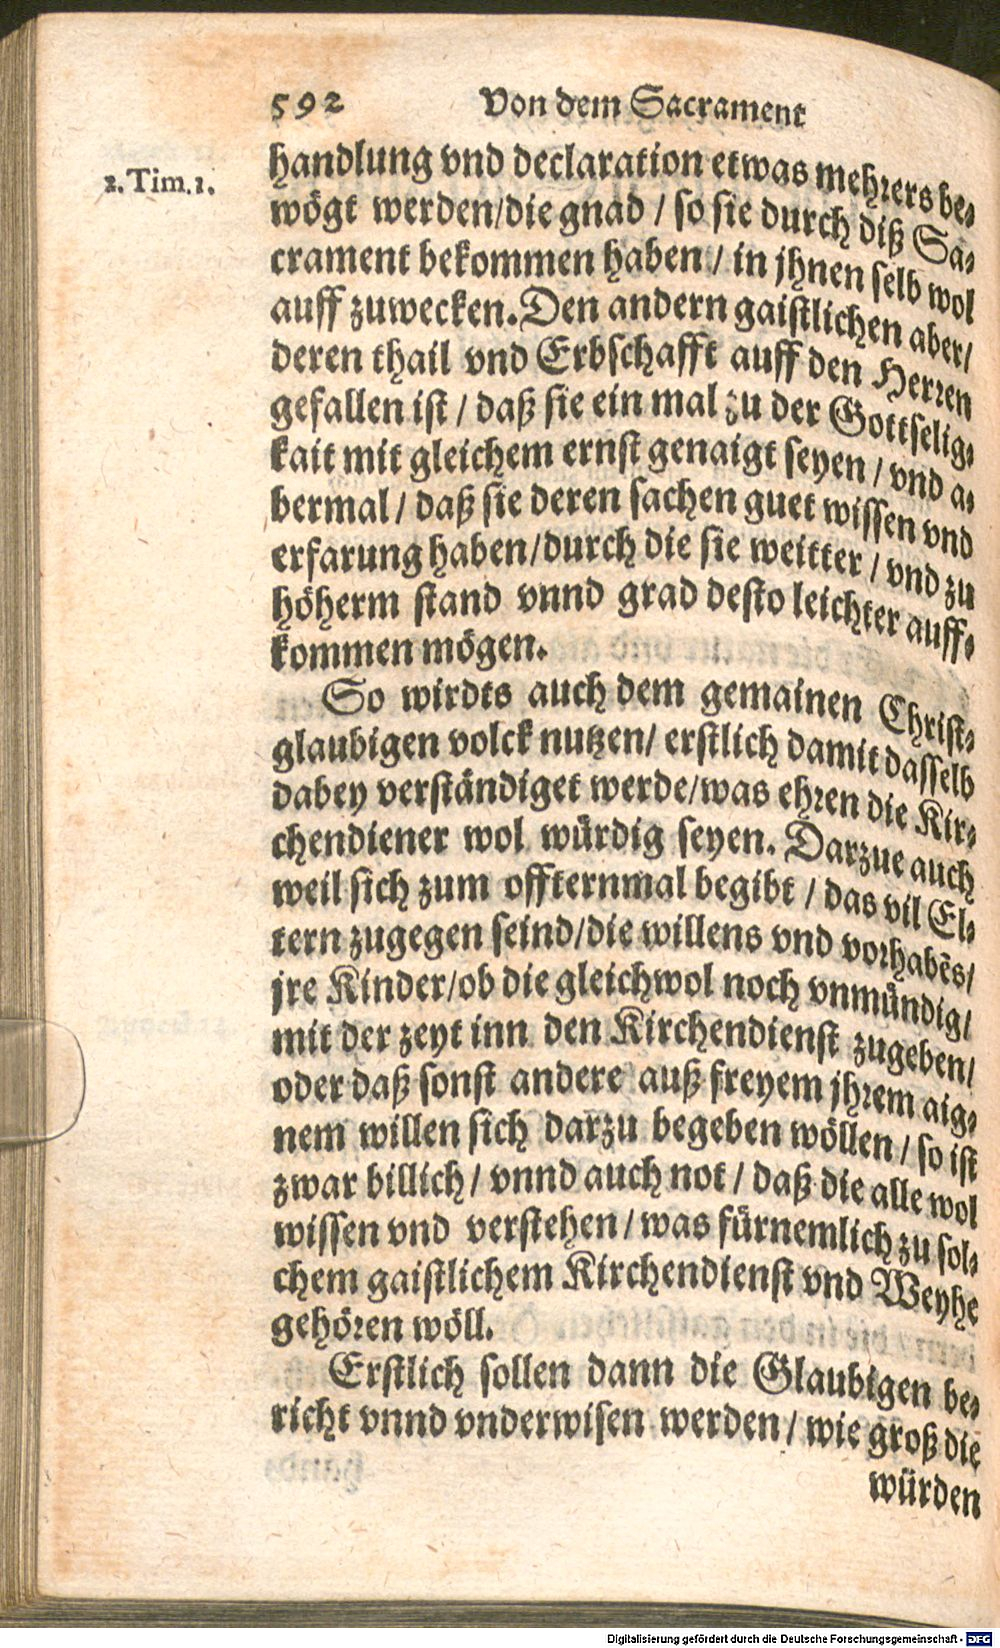 592 Von dem Sacrament
2.Tim.1.
handlung vnd declaration etwas mehrers be⸗
wögt werden/die gnad / so sie durch diß Sa⸗
crament bekommen haben / in jhnen selb wol
auff zuwecken. Den andern gaistlichen aber/
deren thail vnd Erbschafft auff den Herren
gefallen ist / daß sie ein mal zu der Gottselig⸗
kait mit gleichem ernst genaigt seyen / vnd a⸗
bermal / daß sie deren sachen guet wissen vnd
erfarung haben/durch die sie weitter / vnd zu
höherm stand vnnd grad desto leichter auff⸗
kommen mögen.
So wirdts auch dem gemainen Christ⸗
glaubigen volck nutzen/ erstlich damit dasselb
dabey verständiget werde/was ehren die Kir⸗
chendiener wol würdig seyen. Darzue auch
weil sich zum offternmal begibt / das vil El⸗
tern zugegen seind/die willens vnd vorhabēs/
jre Kinder/ob die gleichwol noch vnmündig/
mit der zeyt inn den Kirchendienst zugeben/
oder daß sonst andere auß freyem jhrem aig⸗
nem willen sich darzu begeben wöllen / so ist
zwar billich / vnnd auch not / daß die alle wol
wissen vnd verstehen / was fürnemlich zu sol⸗
chem gaistlichem Kirchendienst vnd Weyhe
gehören wöll.
Erstlich sollen dann die Glaubigen be⸗
richt vnnd vnderwisen werden / wie groß die
würden
Digitalisierung gefördert durch die Deutsche Forschungsgemeinschaft - DFG